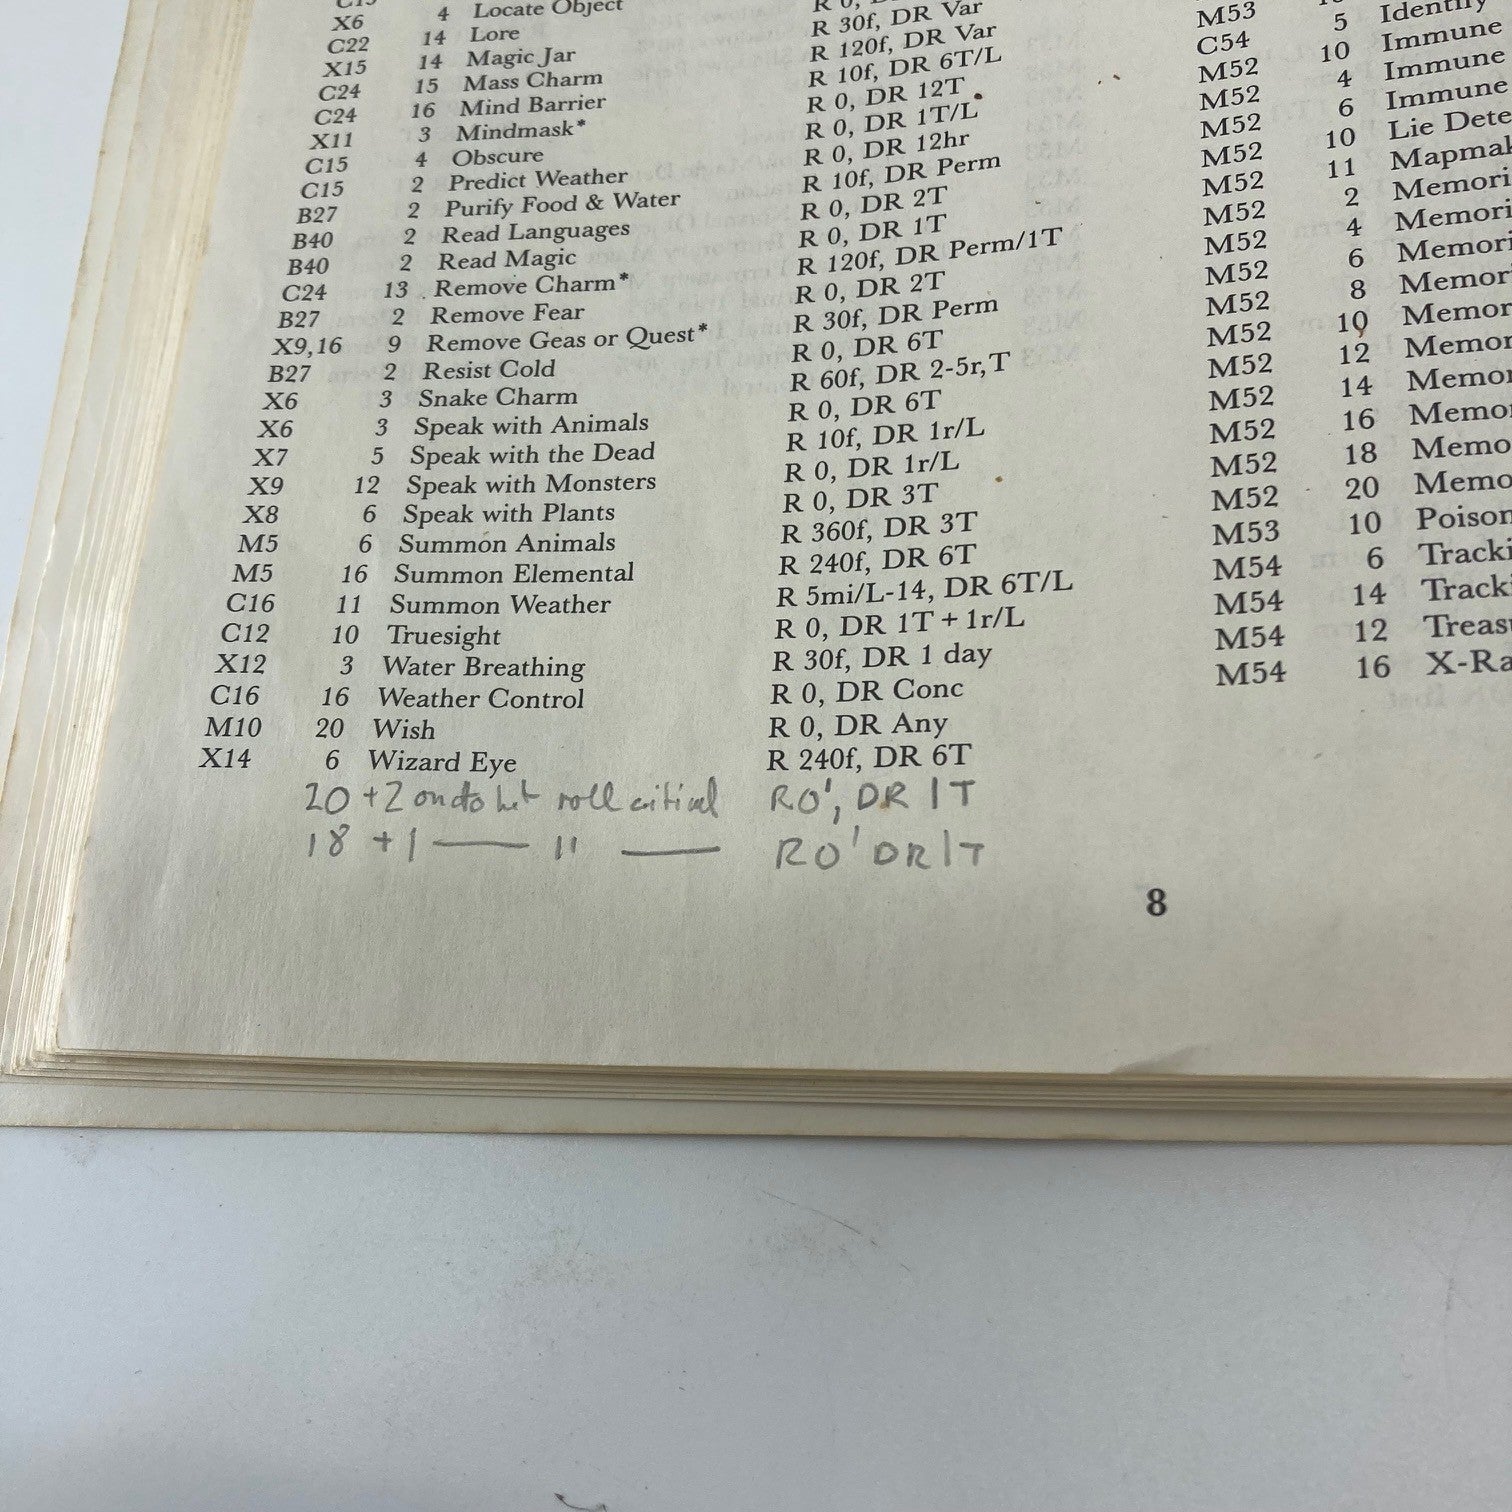 X6 4 Locate Object
C22 14 Lore R 0,
X15 14 Magic Jar R 30f, DR Var
C24 15 Mass Charm R 120f, DR Var
C24 16 Mind Barrier R 10f, DR 6T/L
X11 3 Mindmask* R 0, DR 12T
C15 4 Obscure R 0, DR 1T/L
C15 2 Predict Weather R 0, DR 12hr
B27 2 Purify Food & Water R 10f, DR Perm
B40 2 Read Languages R 0, DR 2T
B40 2 Read Magic R 0, DR 1T
C24 13 Remove Charm* R 120f, DR Perm/1T
B27 2 Remove Fear R 0, DR 2T
X9,16 9 Remove Geas or Quest* R 30f, DR Perm
B27 2 Resist Cold R 0, DR 6T
X6 3 Snake Charm R 60f, DR 2-5r,T
X6 3 Speak with Animals R 0, DR 6T
X7 5 Speak with the Dead R 10f, DR 1r/L
X9 12 Speak with Monsters R 0, DR 1r/L
X8 6 Speak with Plants R 0, DR 3T
M5 6 Summon Animals R 360f, DR 3T
M5 16 Summon Elemental R 240f, DR 6T
C16 11 Summon Weather R 5mi/L-14, DR 6T/L
C12 10 Truesight R 0, DR 1T + 1r/L
X12 3 Water Breathing R 30f, DR 1 day
C16 16 Weather Control R 0, DR Conc
M10 20 Wish R 0, DR Any
X14 6 Wizard Eye R 240f, DR 6T
20 +2 on to hit roll critical RO', DR 1T
18 +1 — " — RO' DR 1T
M53
C54 5 Identify
M52 10 Immune
M52 4 Immune
M52 6 Immune
M52 10 Lie Dete
M52 11 Mapmak
M52 2 Memori
M52 4 Memori
M52 6 Memori
M52 8 Memori
M52 10 Memor
M52 12 Memor
M52 14 Memor
M52 16 Memo
M52 18 Memo
M52 20 Memo
M53 10 Poison
M54 6 Tracki
M54 14 Tracki
M54 12 Treas
M54 16 X-Ra
8